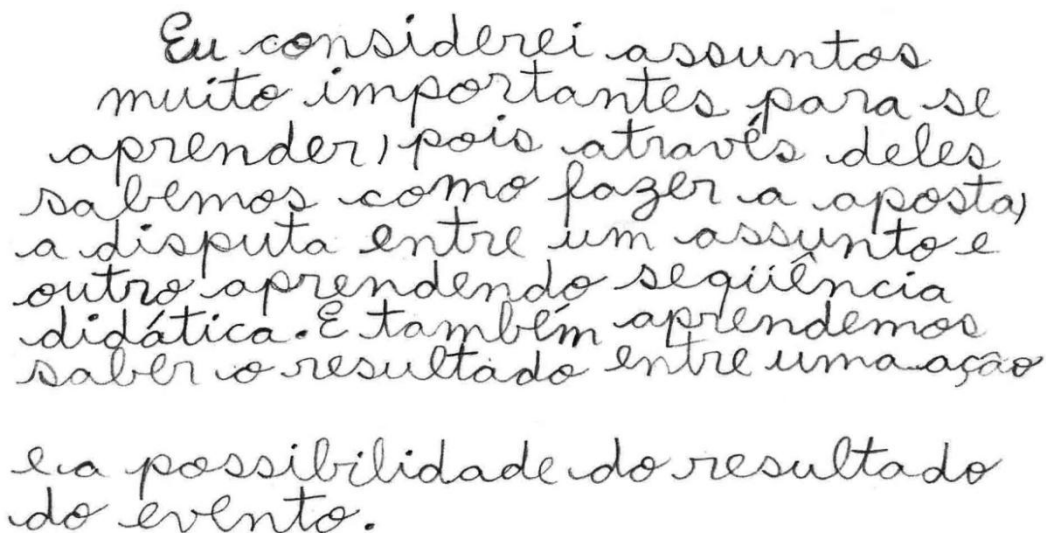 Eu considerei assuntos
muito importantes para se
aprender, pois através deles
sabemos como fazer a aposta,
a disputa entre um assunto e
outro aprendendo seqüência
didática. E também aprendemos
saber o resultado entre uma ação
e a possibilidade do resultado
do evento.